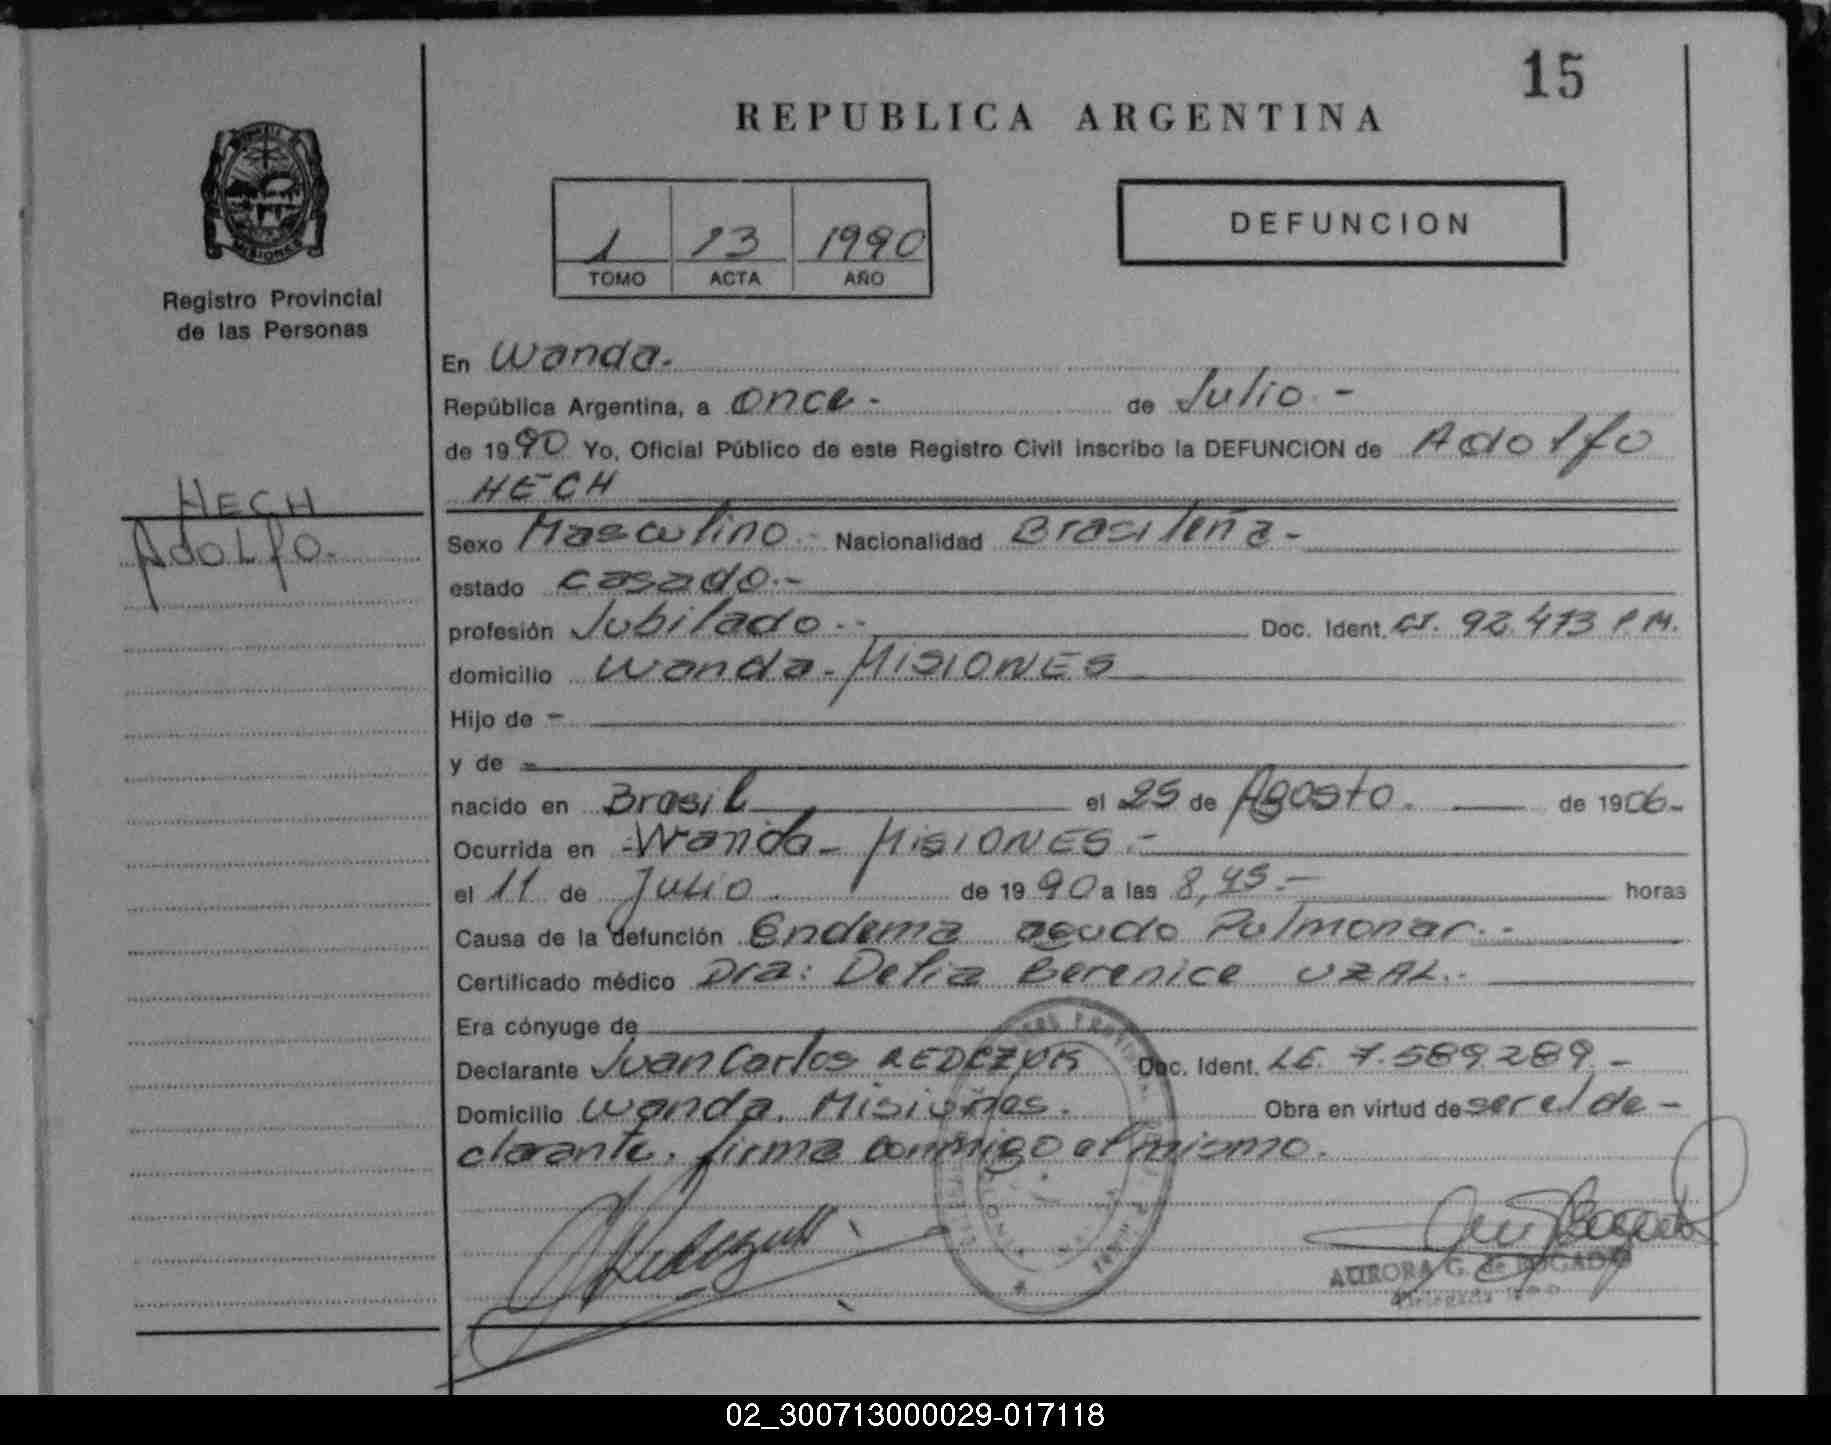 15
REPUBLICA ARGENTINA
1 13 1990
TOMO ACTA AÑO
DEFUNCION
MISIONES
Registro Provincial
de las Personas
HECH
Adolfo.
En Wanda.
República Argentina, a once - de Julio. -
de 1990 Yo, Oficial Público de este Registro Civil inscribo la DEFUNCION de Adolfo
HECH
Sexo Masculino.- Nacionalidad Brasileña-
estado casado.-
profesión Jubilado.. Doc. Ident. CI. 92.473 P.M.
domicilio Wanda-MISIONES
Hijo de -
y de -
nacido en Brasil el 25 de Agosto. de 1906-
Ocurrida en -Wanda- MISIONES.-
el 11 de Julio de 1990 a las 8,45.- horas
Causa de la defunción Endema agudo Pulmonar.-
Certificado médico Dra: Delia Berenice UZAL.-
Era cónyuge de
Declarante Juan Carlos REDCZUK Doc. Ident. LE. 7.589289.-
Domicilio Wanda. Misiones. Obra en virtud de ser el de-
clarante. firma conmigo el mismo.
AURORA G. de BOGADO
Delegada
02_300713000029-017118